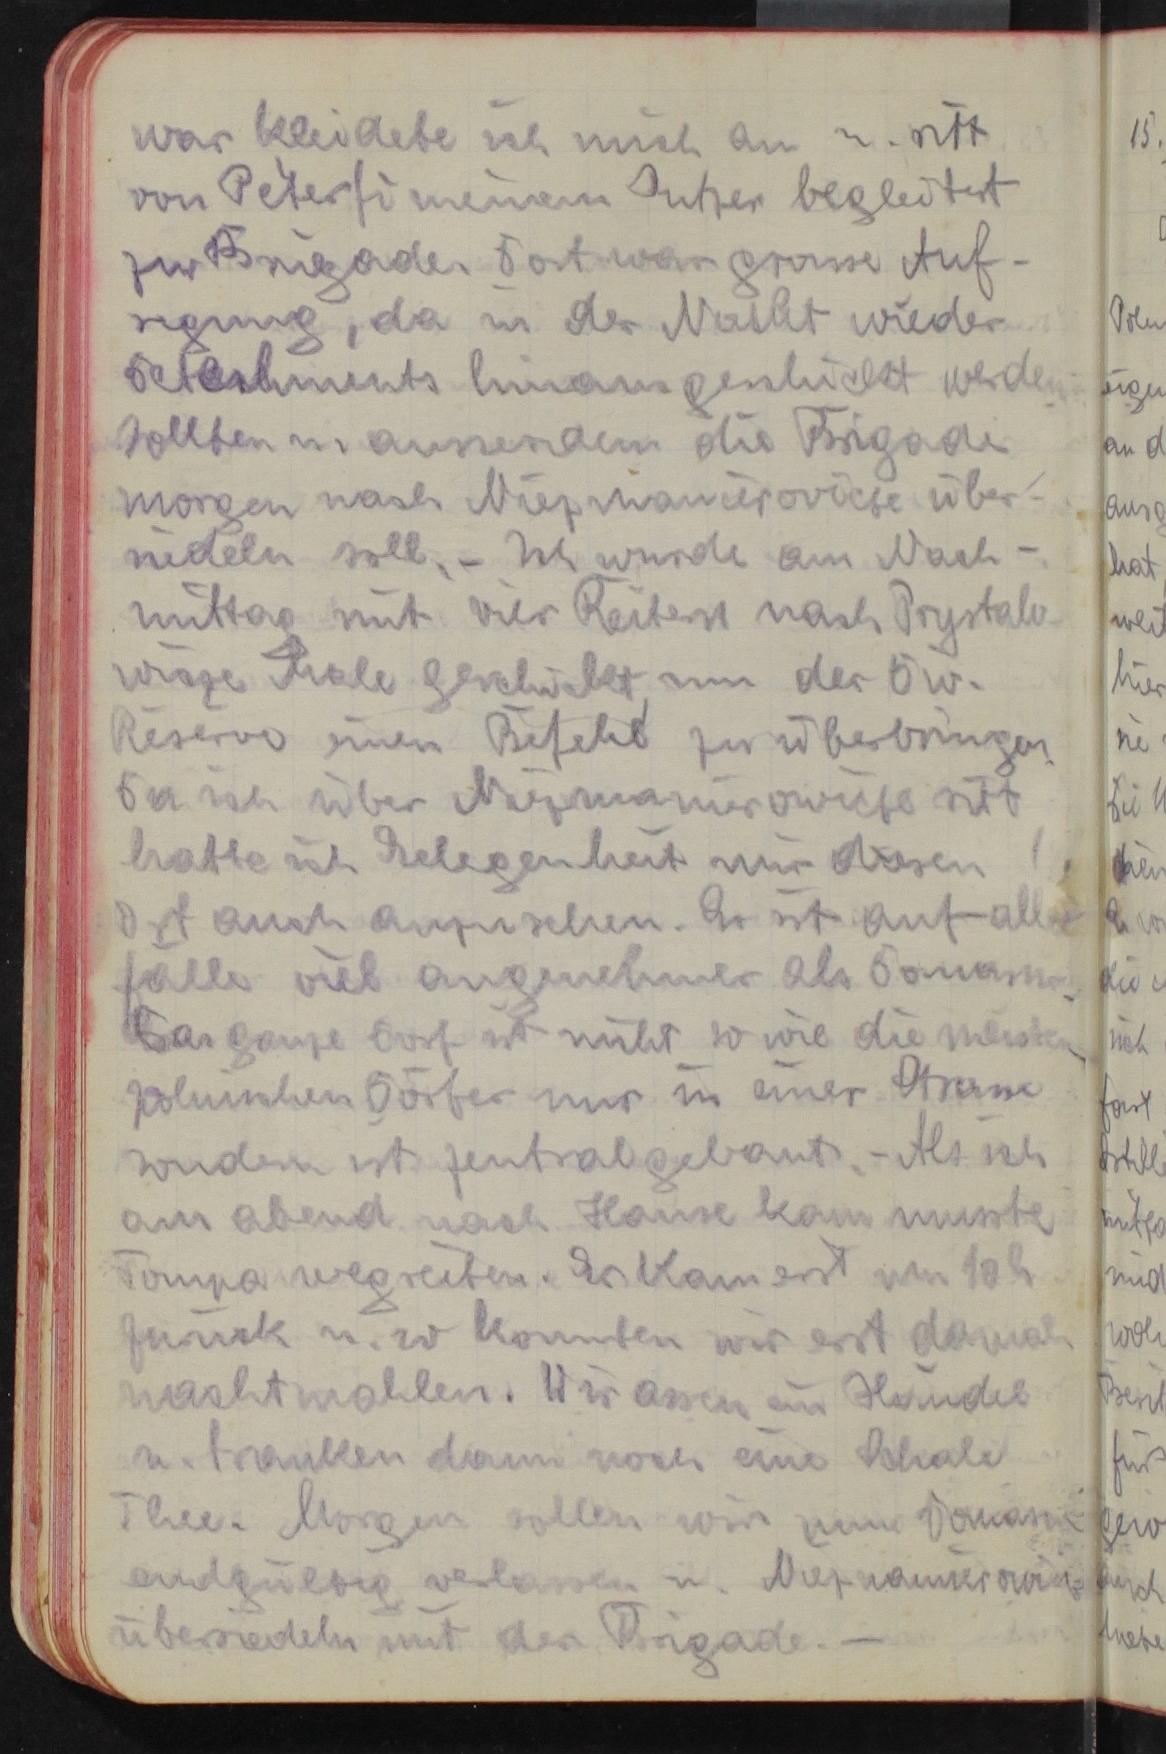 war kleidete ich mich an u. ritt
von Péterfi meinem Putzer begleitet
zur Brigade. Dort war grosse Auf-
regung, da in der Nacht wieder
Detachments hinausgeschickt werden
sollten u. ausserdem die Brigade
morgen nach Nieznamierowice über-
siedeln soll. - Ich wurde am Nach-
mittag mit vier Reitern nach Przystalo
wicze Male geschickt, um der Div.
Reserve einen Befehl zu überbringen.
Da ich über Nieznamierowice ritt
hatte ich Gelegenheit mir diesen
Ort auch anzusehen. Er ist auf alle
fälle viel angenehmer als
Das ganze Dorf ist nicht so wie die meisten
polnischen Dörfer nur in einer Strasse
sondern ist zentral gebaut. - Als ich
am abend nach Hause kam musste
Tompa wegreiten. Er kam erst um 10 h
zurück u. so konnten wir erst danach
nachtmahlen. Wir assen ein Händel
u. tranken dann noch eine Schale
Thee. Morgen sollen wir nun
endgültig verlassen u. Nieznamierowice
übersiedeln mit der Brigade. -
15.